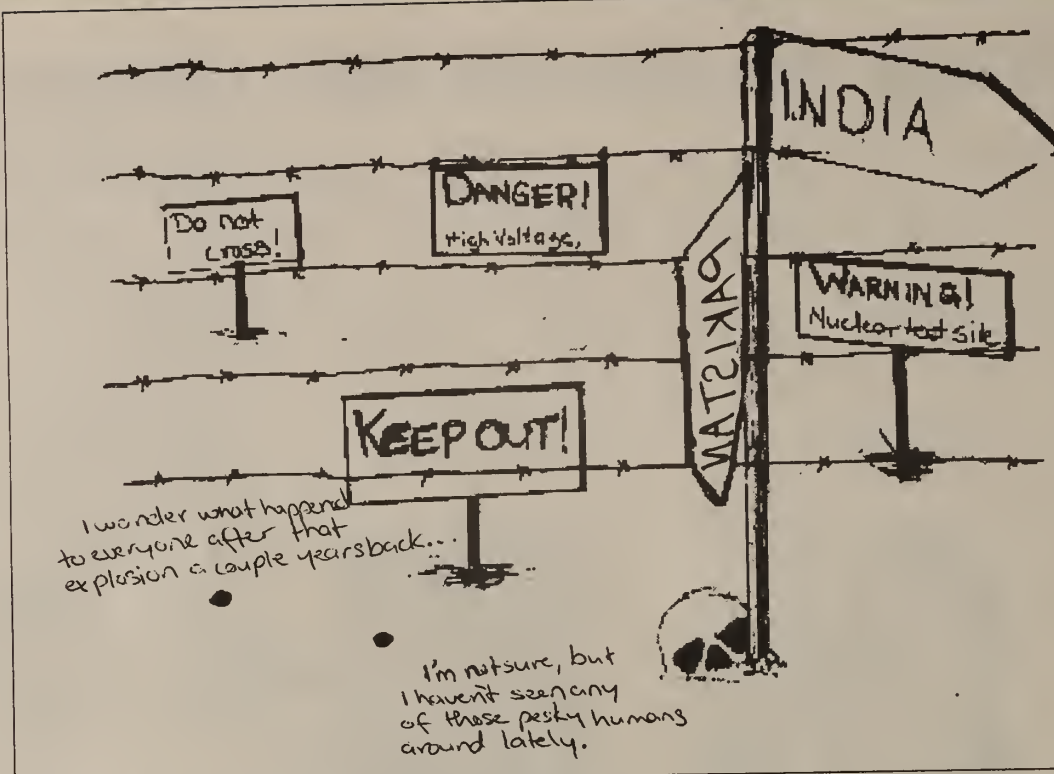 INDIA
DANGER!
High Voltage,
Do not
cross!
PAKISTAN
WARNING!
Nuclear test site
KEEP OUT!
I wonder what happend
to everyone after that
explosion a couple years back...
I'm not sure, but
I haven't seen any
of those pesky humans
around lately.